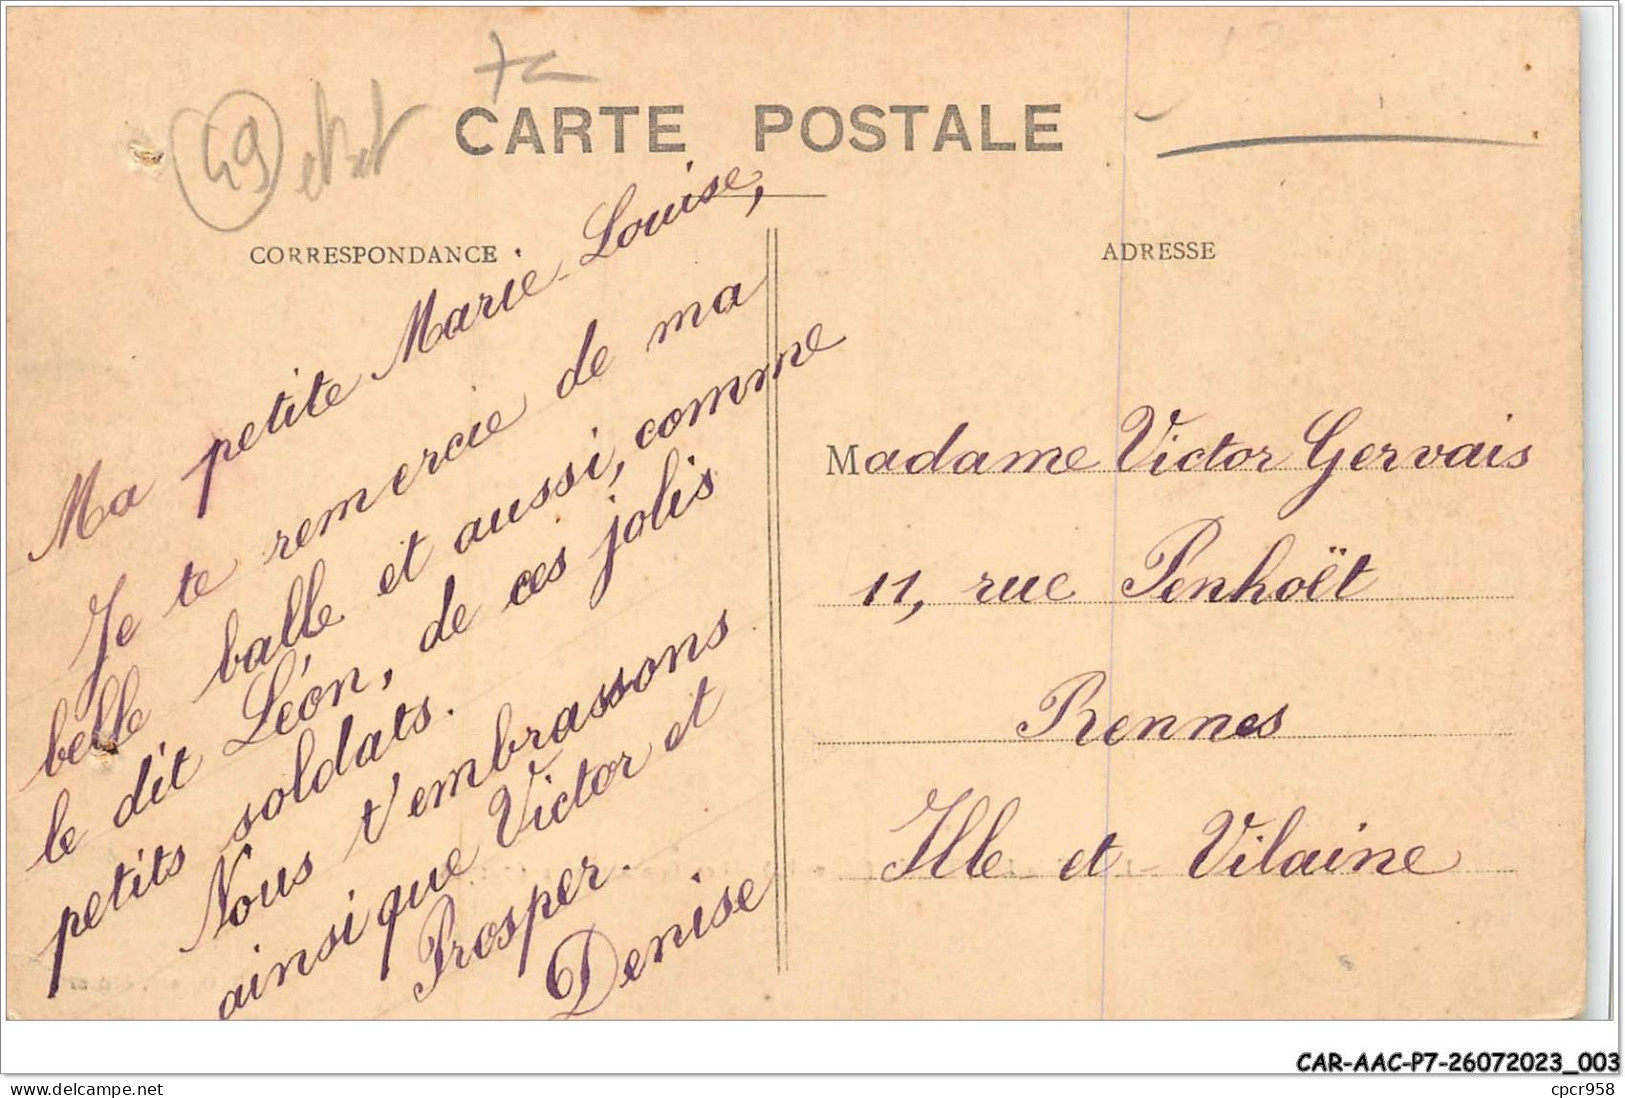 49
CARTE POSTALE
CORRESPONDANCE
Ma petite Marie-Louise,
Je te remercie de ma
belle balle et aussi, comme
le dit Léon, de ces jolis
petits soldats.
Nous t'embrassons
ainsi que Victor et
Prosper.
Denise
ADRESSE
Madame Victor Gervais
11, rue Penhoët
Rennes
Ille et Vilaine
CAR-AAC-P7-26072023_003
www.delcampe.net
cpcr958